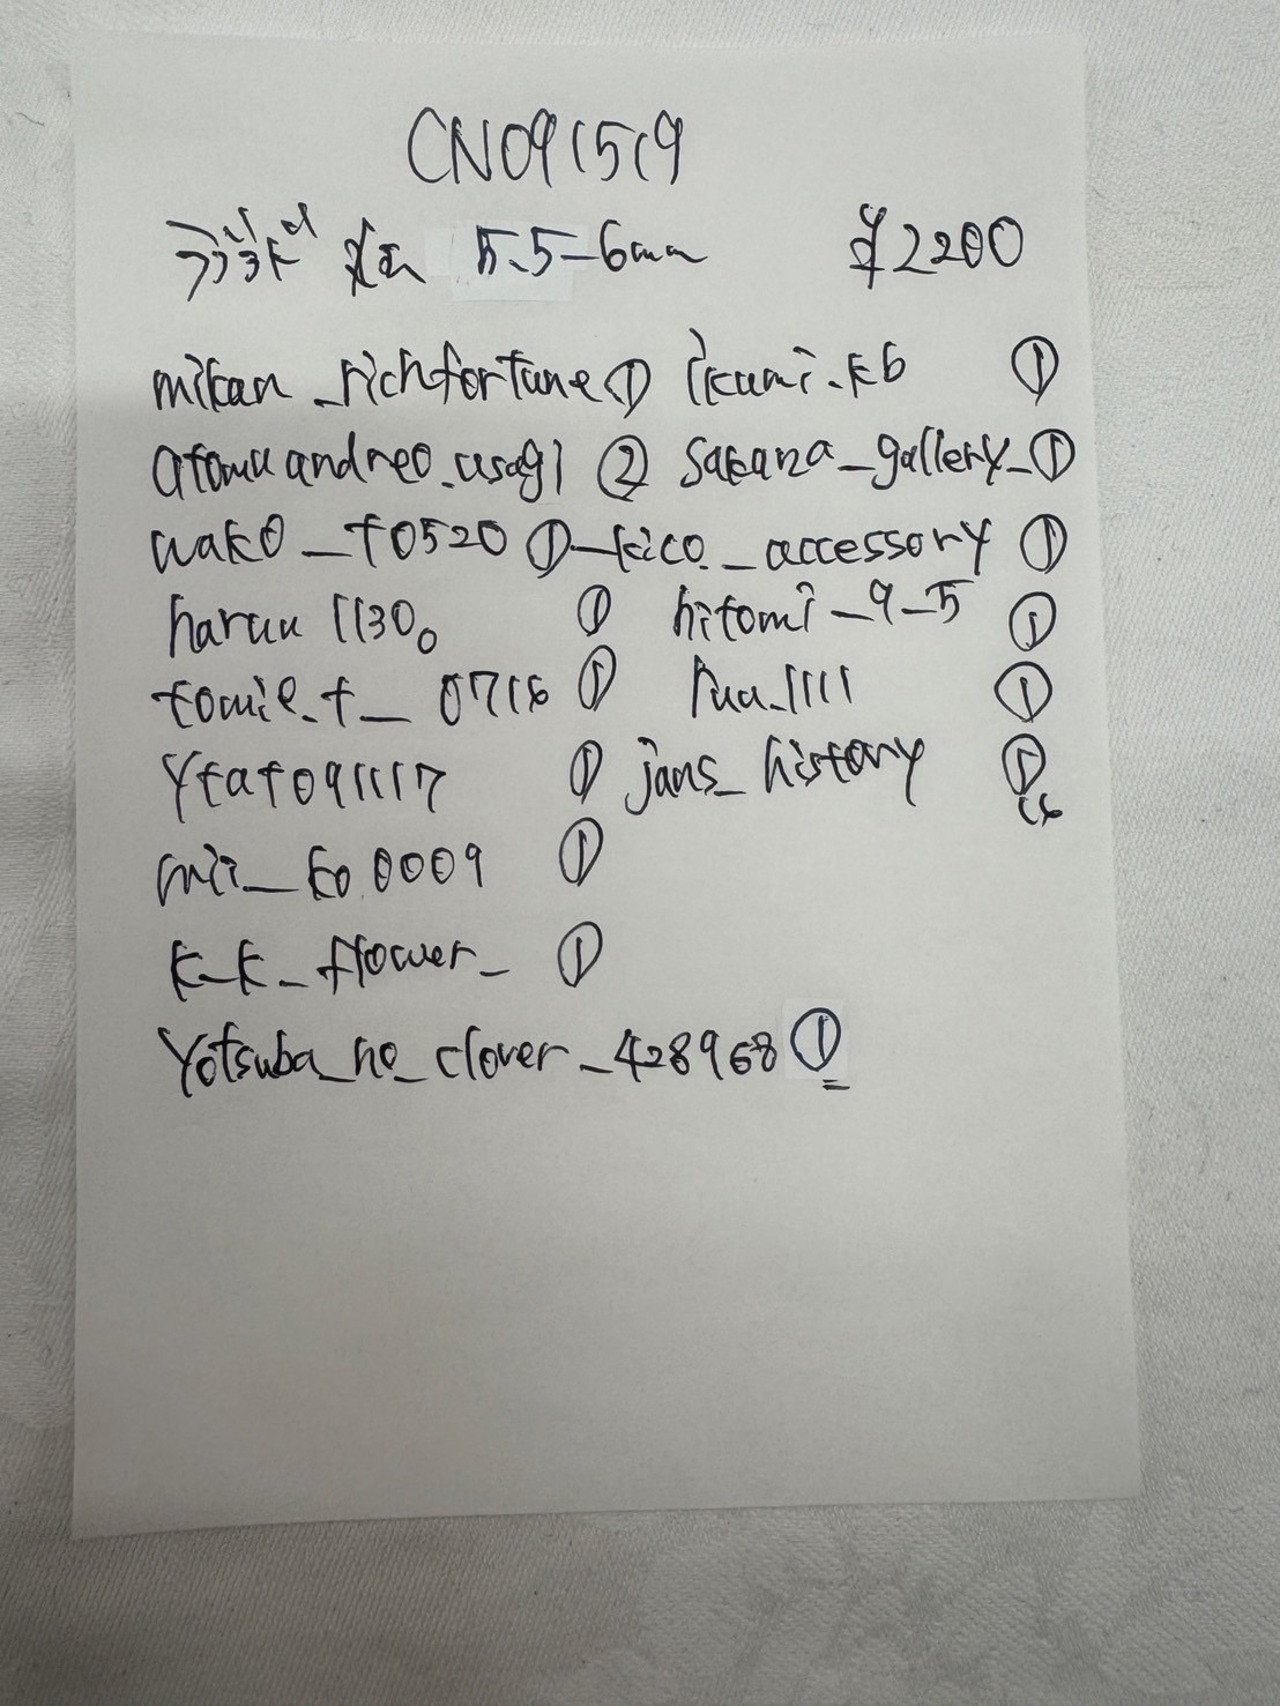 CN091519
5.5-6mm ¥2200
mikan_richfortune ① ikumi.k6 ①
atomuandreo.usagi ② sakana_gallery_ ①
wako_t0520 ① _kico._accessory ①
haruu1130。 ① hitomi_9_5 ①
tomie.t__0716 ① ①
ytat091117 ① jans_history ①
16
mii_ko.0009 ①
k_k_flower_ ①
yotsuba_no_clover_428968 ①